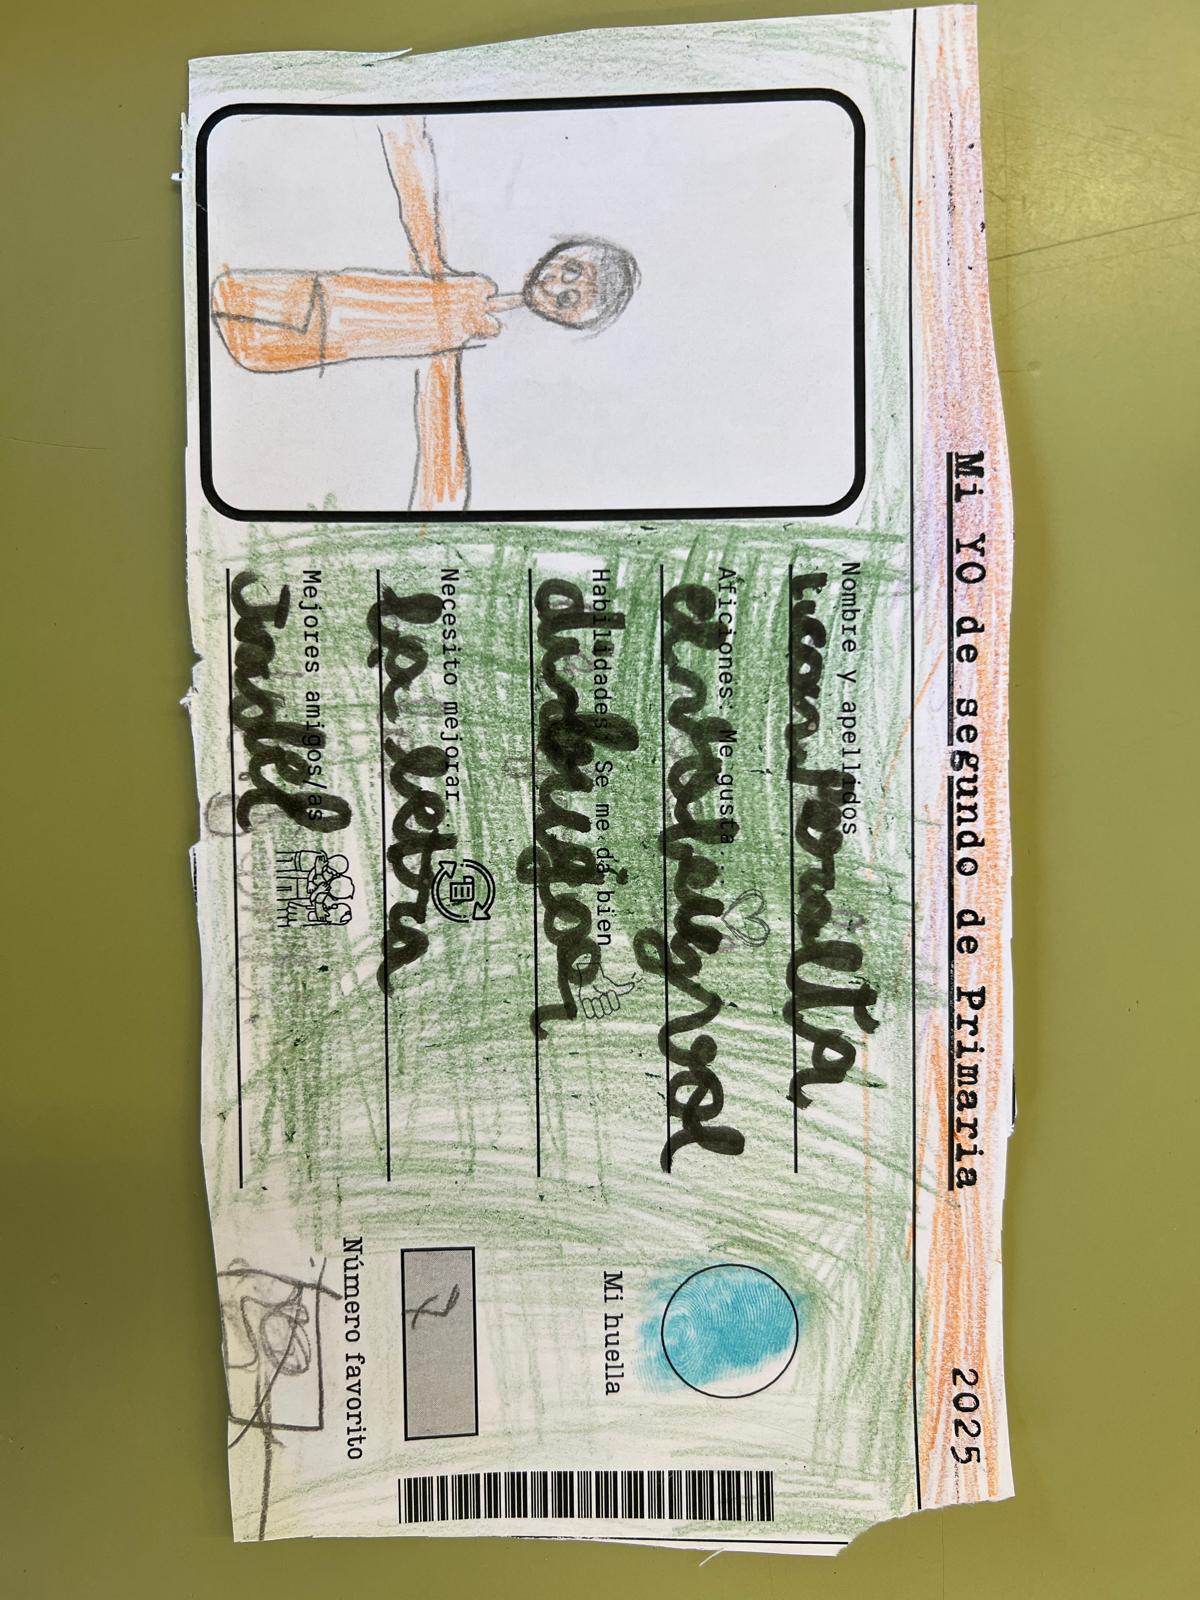 Mi YO de segundo de Primaria 2025
Nombre y apellidos
Peralta
Aficiones: Me gusta...
el
Habilidades: Se me da bien
dibujar
Necesito mejorar...
la letra
Mejores amigos/as
Mi huella
7
Número favorito